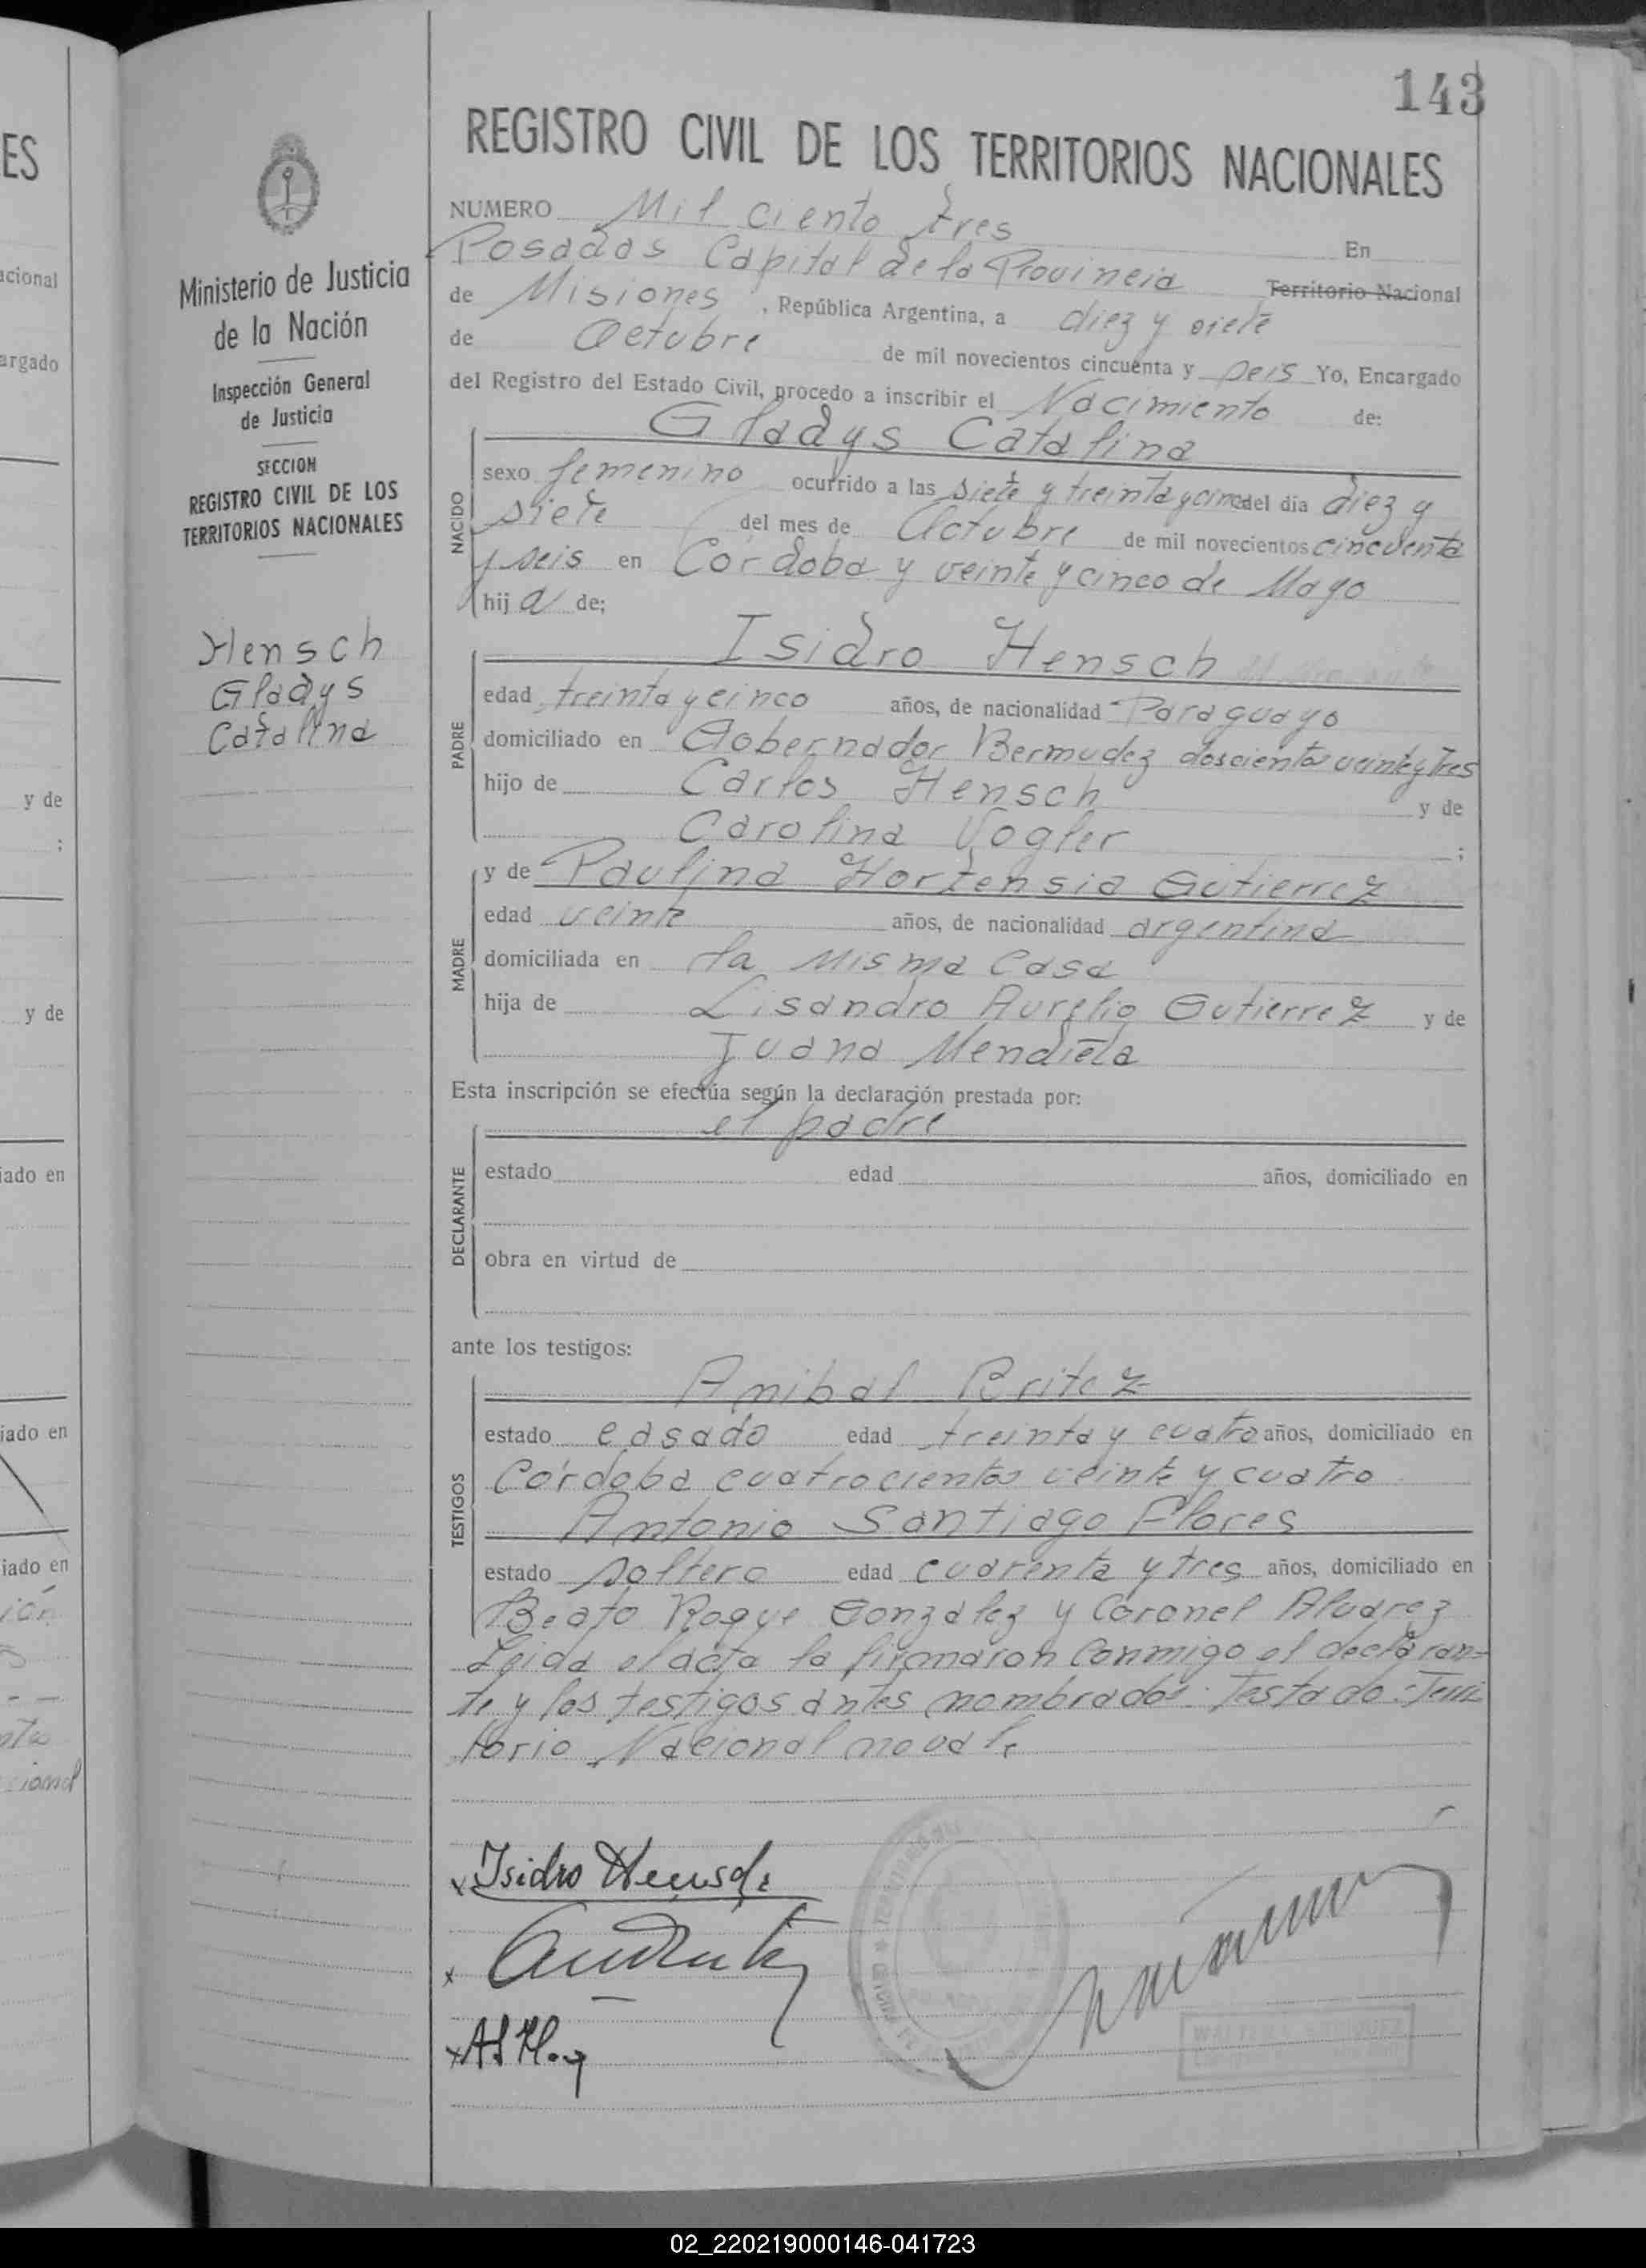 143
REGISTRO CIVIL DE LOS TERRITORIOS NACIONALES
NUMERO Mil ciento tres
En
Posadas Capital de la Provincia Territorio Nacional
de Misiones, República Argentina, a diez y siete
de Octubre de mil novecientos cincuenta y seis Yo, Encargado
del Registro del Estado Civil, procedo a inscribir el Nacimiento de:
Gladys Catalina
NACIDO
sexo femenino ocurrido a las siete y treinta y cinco del día diez y
siete del mes de Octubre de mil novecientos cincuenta
y seis en Córdoba y veinte y cinco de Mayo
hija de;
Isidro Hensch
PADRE
edad treinta y cinco años, de nacionalidad Paraguayo
domiciliado en Gobernador Bermudez doscientos veinte y tres
hijo de Carlos Hensch y de
Carolina Vogler ;
MADRE
y de Paulina Hortensia Gutierrez
edad veinte años, de nacionalidad argentina
domiciliada en la misma casa
hija de Lisandro Aurelio Gutierrez y de
Juana Mendieta
Esta inscripción se efectúa según la declaración prestada por:
el padre
DECLARANTE
estado edad años, domiciliado en
obra en virtud de
ante los testigos:
Anibal Britez
TESTIGOS
estado casado edad treinta y cuatro años, domiciliado en
Córdoba cuatrocientos veinte y cuatro
Antonio Santiago Flores
estado soltero edad cuarenta y tres años, domiciliado en
Beato Roque González y Coronel Alvarez
Leida el acta la firmaron conmigo el declaran-
te y los testigos antes nombrados. Testado: Terri
torio Nacional no vale
Isidro Hensch
Ministerio de Justicia
de la Nación
Inspección General
de Justicia
SECCION
REGISTRO CIVIL DE LOS
TERRITORIOS NACIONALES
Hensch
Gladys
Catalina
ES
acional
argado
y de
;
y de
iado en
iado en
iado en
02_220219000146-041723